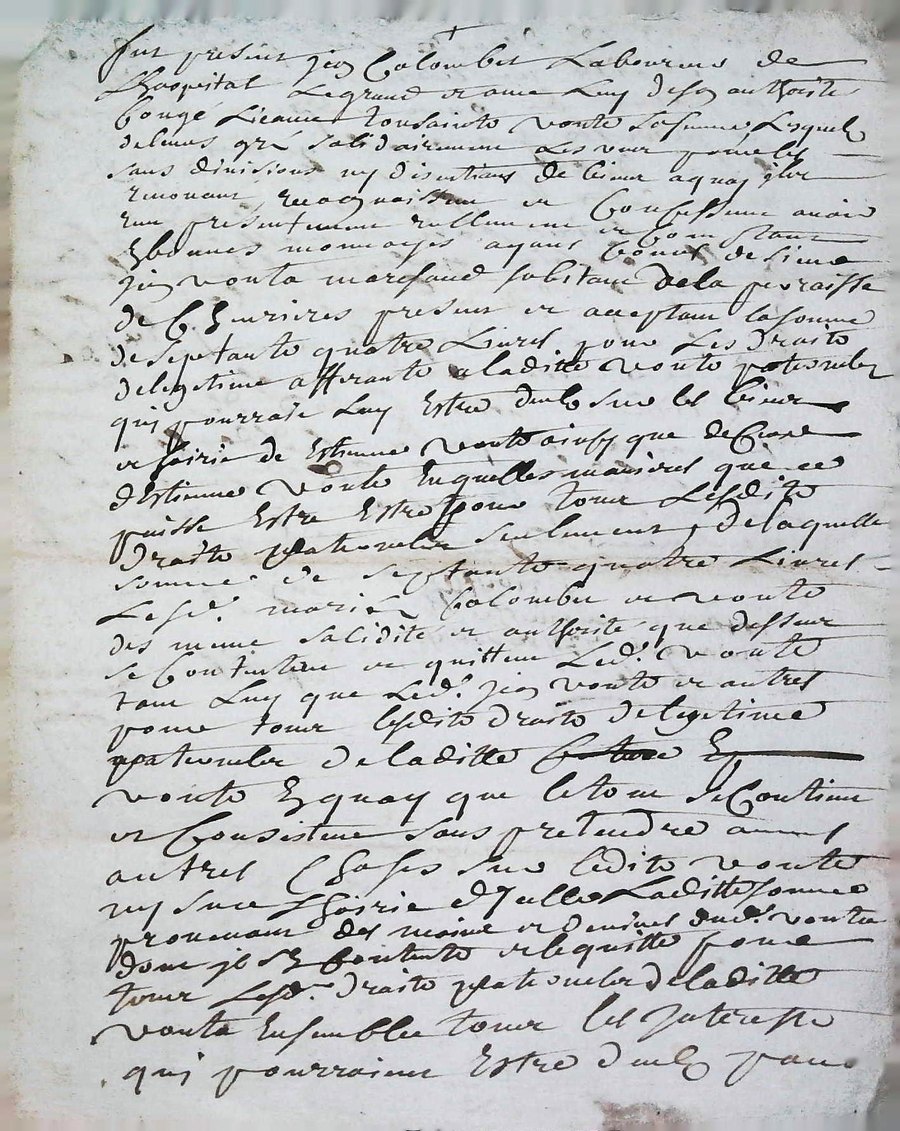 fut present Jean Colombet Laboureur de
Lhospital Legrand et avec Luy de son authorite
Conge Licance toursainte vonte sa femme Lesquels
de leurs gré solidairement
sans divisions ny discutions de biens a quoy ils
renoncant recognaissent et Confessent avoir
reçu presentement reellement et Comptant
En bonnes monnoyes ayant Cours de sieur
Jean vonta marchand habitant de la perroisse
de Cheurieres present et acceptant la somme
de septante quatre Livres pour Les droits
de legitime afferants a laditte vonte paternelles
qui pourrait Luy Estre deubs sur les biens
et hoirie de Estienne vonte ainsy que de
d'Estienne vonte En quelles manieres que ce
puisse Estre Estre pour tous Lesdits
droits paternelles seulement, de laquelle
somme de septante quatre Livres
Lesd. mariés Colombet et vonte
des meme solidité et authorité que dessus
se Contentent et quittent Led. vonte
tant Luy que Led. Jean vonte et autres
pour tous lesdits droits de legitime
paternelles de laditte
vonte En quoy que le tout se Contiene
et Consistent sans pretendre
autres Choses sur ledit vonte
ny sur Lhoirie et Laditte somme
provenant des mains et deniers dud. vonta
dont je sen Contente et le quitte pour
tous Lesd. droits paternelles de laditte
vonta Ensemble tous les Interests
qui pourroient Estre deubs pour